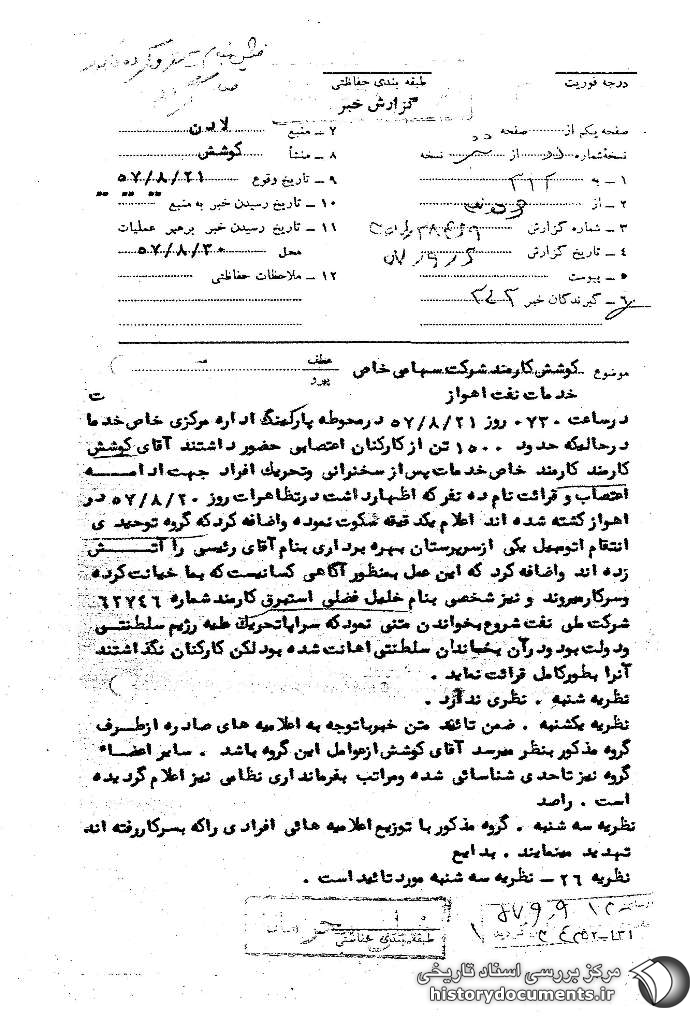 درجه فوریت
طبقه بندی حفاظتی
گزارش خبر
صفحه یکم از صفحه
نسخه شماره از نسخه
۱ ـ به ۳۱۲
۲ ـ از
۳ ـ شماره گزارش
۴ ـ تاریخ گزارش
۵ ـ پیوست
۶ ـ گیرندگان خبر
۷ ـ منبع لادن
۸ ـ منشأ کوشش
۹ ـ تاریخ وقوع ۵۷/۸/۲۱
۱۰ ـ تاریخ رسیدن خبر به منبع
۱۱ ـ تاریخ رسیدن خبر برهبر عملیات
محل ۵۷/۸/۳۰
۱۲ ـ ملاحظات حفاظتی
موضوع کوشش کارمند شرکت سهامی خاص
خدمات نفت اهواز
عطف
پیرو
درساعت ۰۷۳۰ روز ۵۷/۸/۲۱ درمحوطه پارکینگ اداره مرکزی خاص خدما ت
درحالیکه حدود ۱۵۰۰ تن ازکارکنان اعتصابی حضور داشتند آقای کوشش
کارمند کارمند خاص خدمات پس از سخنرانی وتحریك افراد جهت ادامه
اعتصاب و قرائت نام ده نفر که اظهارداشت درتظاهرات روز ۵۷/۸/۲۰ در
اهواز کشته شده اند اعلام یکدقیقه سکوت نموده واضافه کرد که گروه توحید ی
انتقام اتومبیل یکی ازسرپرستان بهره برداری بنام آقای رئیسی را آتش
زده اند واضافه کرد که این عمل بمنظور آگاهی کسانیست که بما خیانت کرده
وسرکارمیروند و نیز شخصی بنام خلیل فضلی استهرق کارمند شماره ۶۲۷۴۶
شرکت ملی نفت شروع بخواندن متنی نمود که سراپاتحریك علیه رژیم سلطنتی
ودولت بود ودرآن بخاندان سلطنتی اهانت شده بود لکن کارکنان نگذاشتند
آنرا بطورکامل قرائت نماید .
نظریه شنبه . نظری ندارد .
نظریه یکشنبه . ضمن تائید متن خبرباتوجه به اعلامیه های صادره ازطرف
گروه مذکور بنظر میرسد آقای کوشش ازعوامل این گروه باشد . سایر اعضاء
گروه نیز تاحدی شناسائی شده ومراتب بفرمانداری نظامی نیز اعلام گردیده
است . راصد
نظریه سه شنبه . گروه مذکور با توزیع اعلامیه هائی افرادی راکه بسرکاررفته اند
تهدید مینمایند . بدایع
نظریه ۲۶ ـ نظریه سه شنبه مورد تائید است .
طبقه بندی حفاظتی
مرکز بررسی اسناد تاریخی
historydocuments.ir